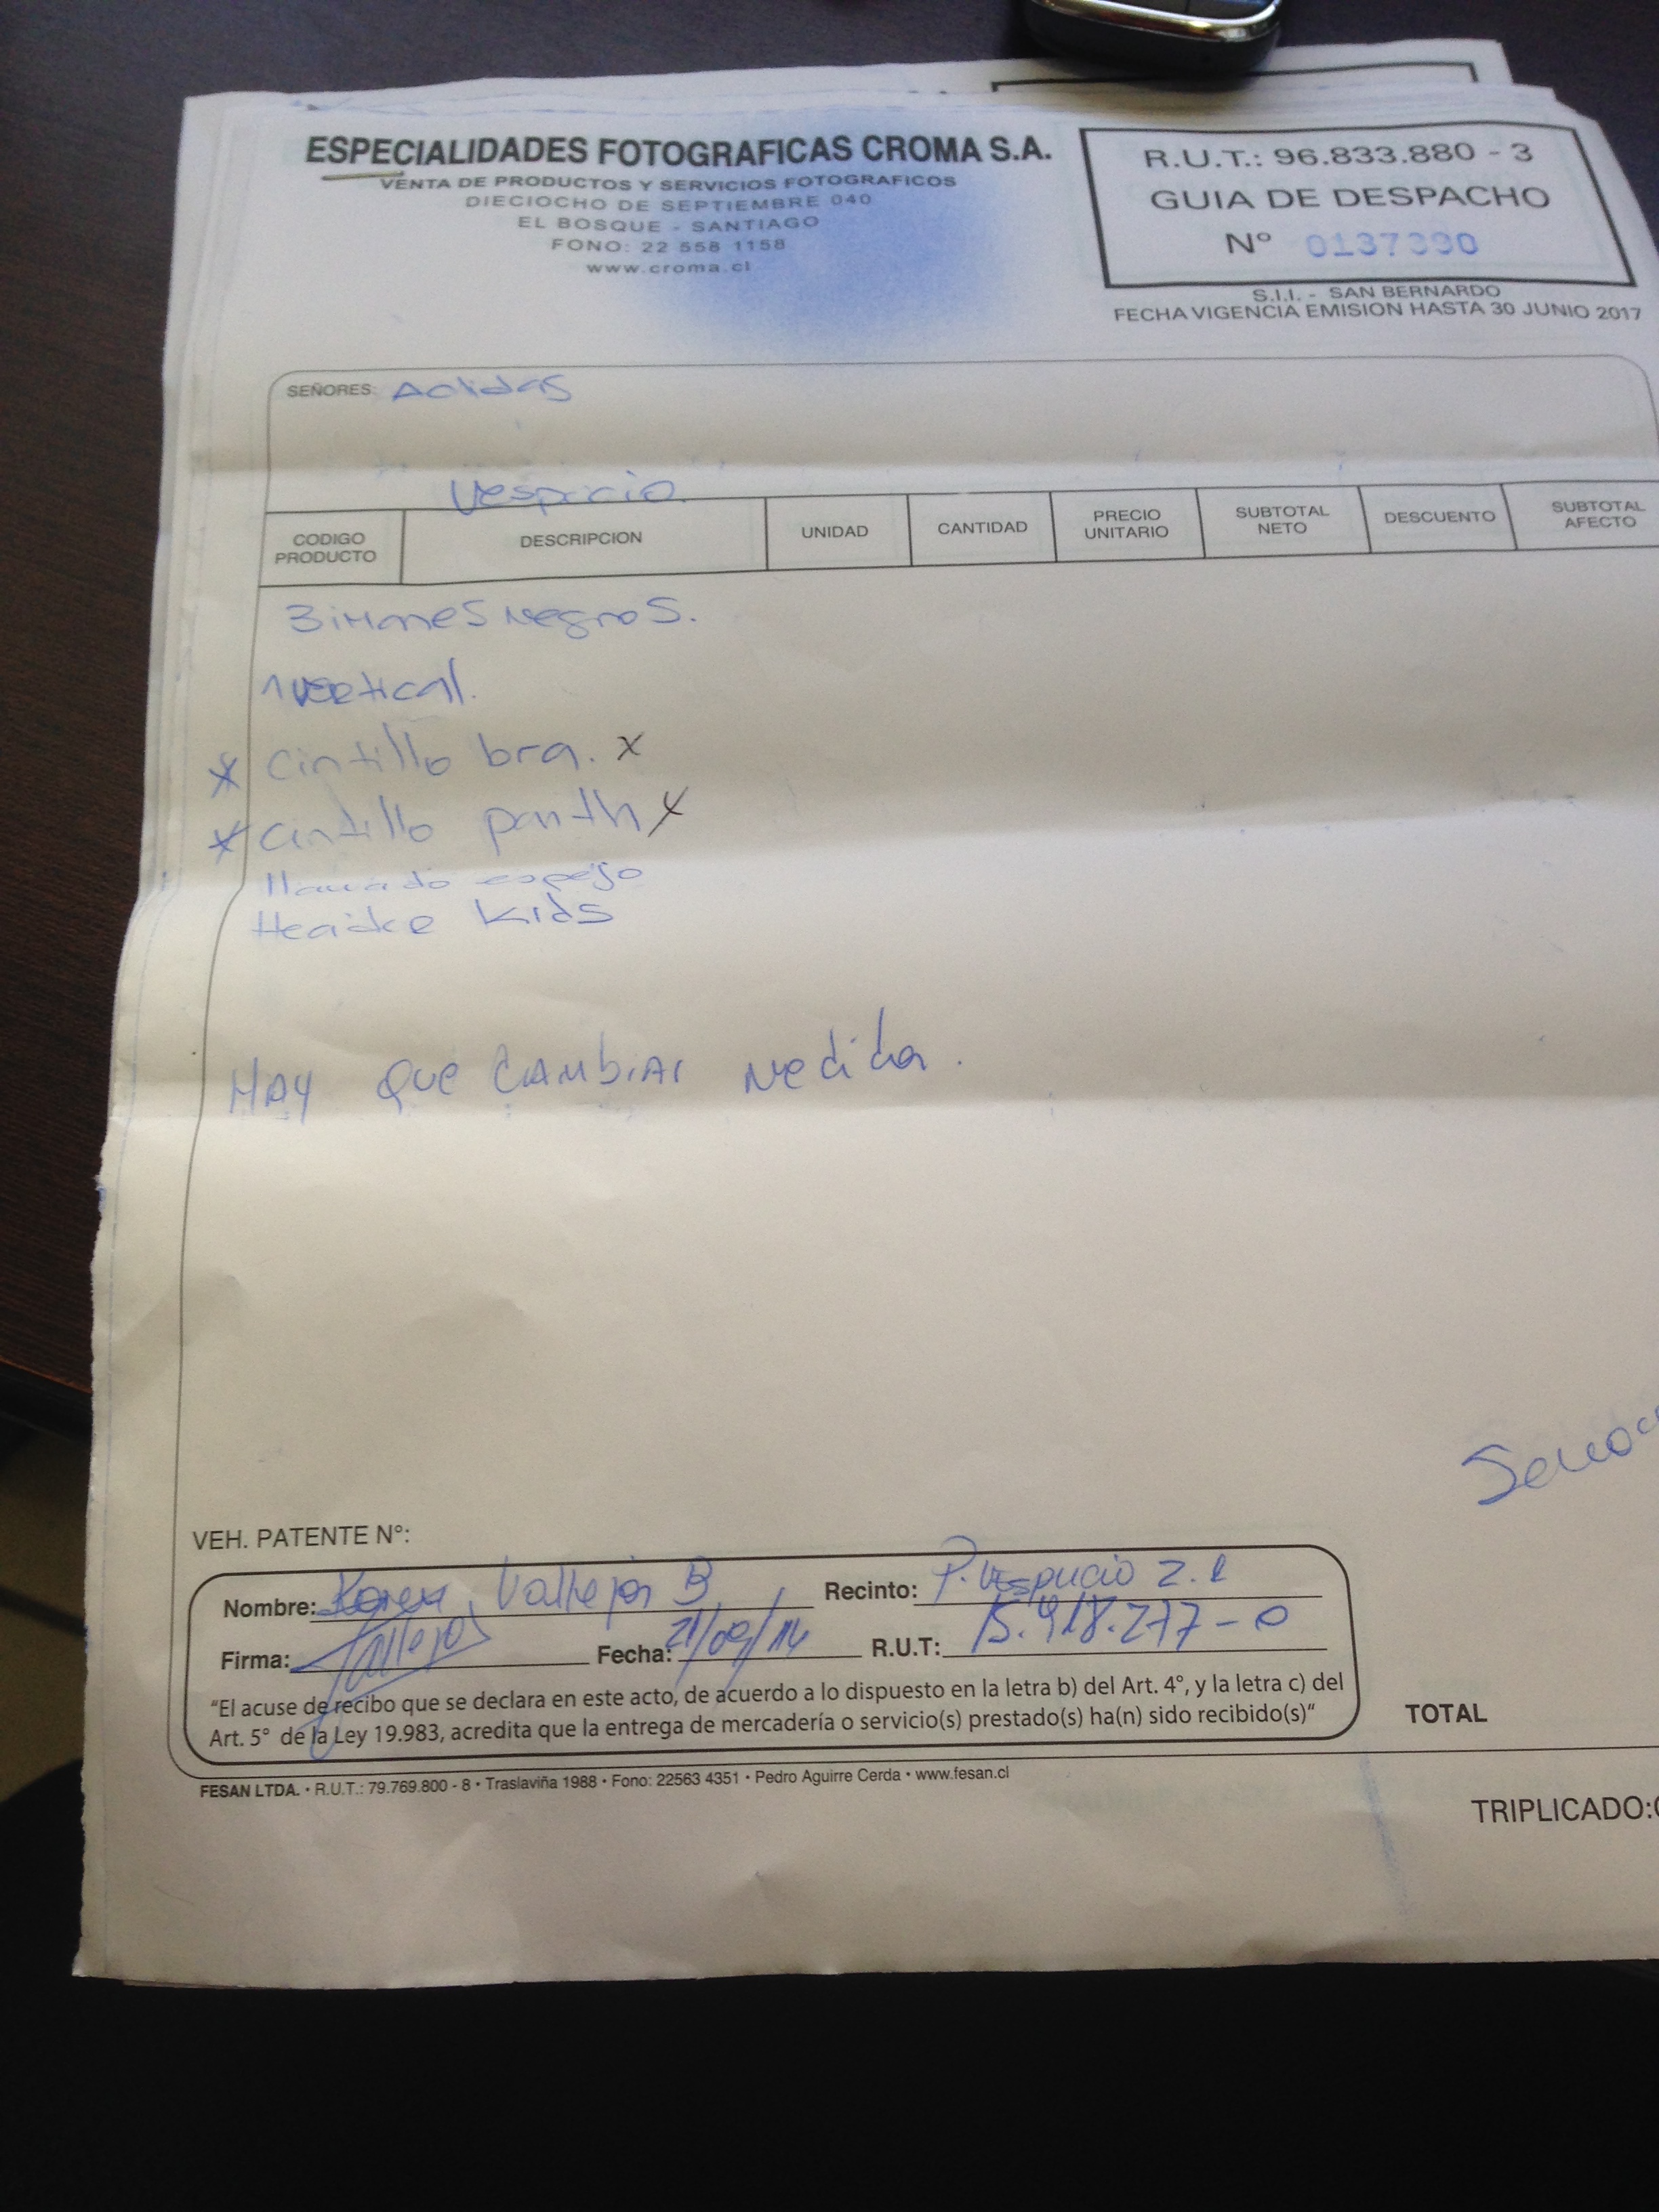 ESPECIALIDADES FOTOGRAFICAS CROMA S.A.
VENTA DE PRODUCTOS Y SERVICIOS FOTOGRAFICOS
DIECIOCHO DE SEPTIEMBRE 040
EL BOSQUE - SANTIAGO
FONO: 22 558 1158
www.croma.cl
R.U.T.: 96.833.880 - 3
GUIA DE DESPACHO
Nº 0137390
S.I.I. - SAN BERNARDO
FECHA VIGENCIA EMISION HASTA 30 JUNIO 2017
SEÑORES: Adidas
Vespucio
CODIGO PRODUCTO
DESCRIPCION
UNIDAD
CANTIDAD
PRECIO UNITARIO
SUBTOTAL NETO
DESCUENTO
SUBTOTAL AFECTO
3 imanes negros.
1 vertical.
* cintillo bra. x
* cintillo panth x
Heaider Kids
HAY que CAMbiAr Medida.
VEH. PATENTE Nº:
Nombre: Karen Vallejos B
Recinto: P. Vespucio 2.
Firma:
Fecha:
R.U.T: 15.918.277-0
"El acuse de recibo que se declara en este acto, de acuerdo a lo dispuesto en la letra b) del Art. 4°, y la letra c) del
Art. 5° de la Ley 19.983, acredita que la entrega de mercadería o servicio(s) prestado(s) ha(n) sido recibido(s)"
TOTAL
FESAN LTDA. • R.U.T.: 79.769.800 - 8 • Traslaviña 1988 • Fono: 22563 4351 • Pedro Aguirre Cerda • www.fesan.cl
TRIPLICADO: